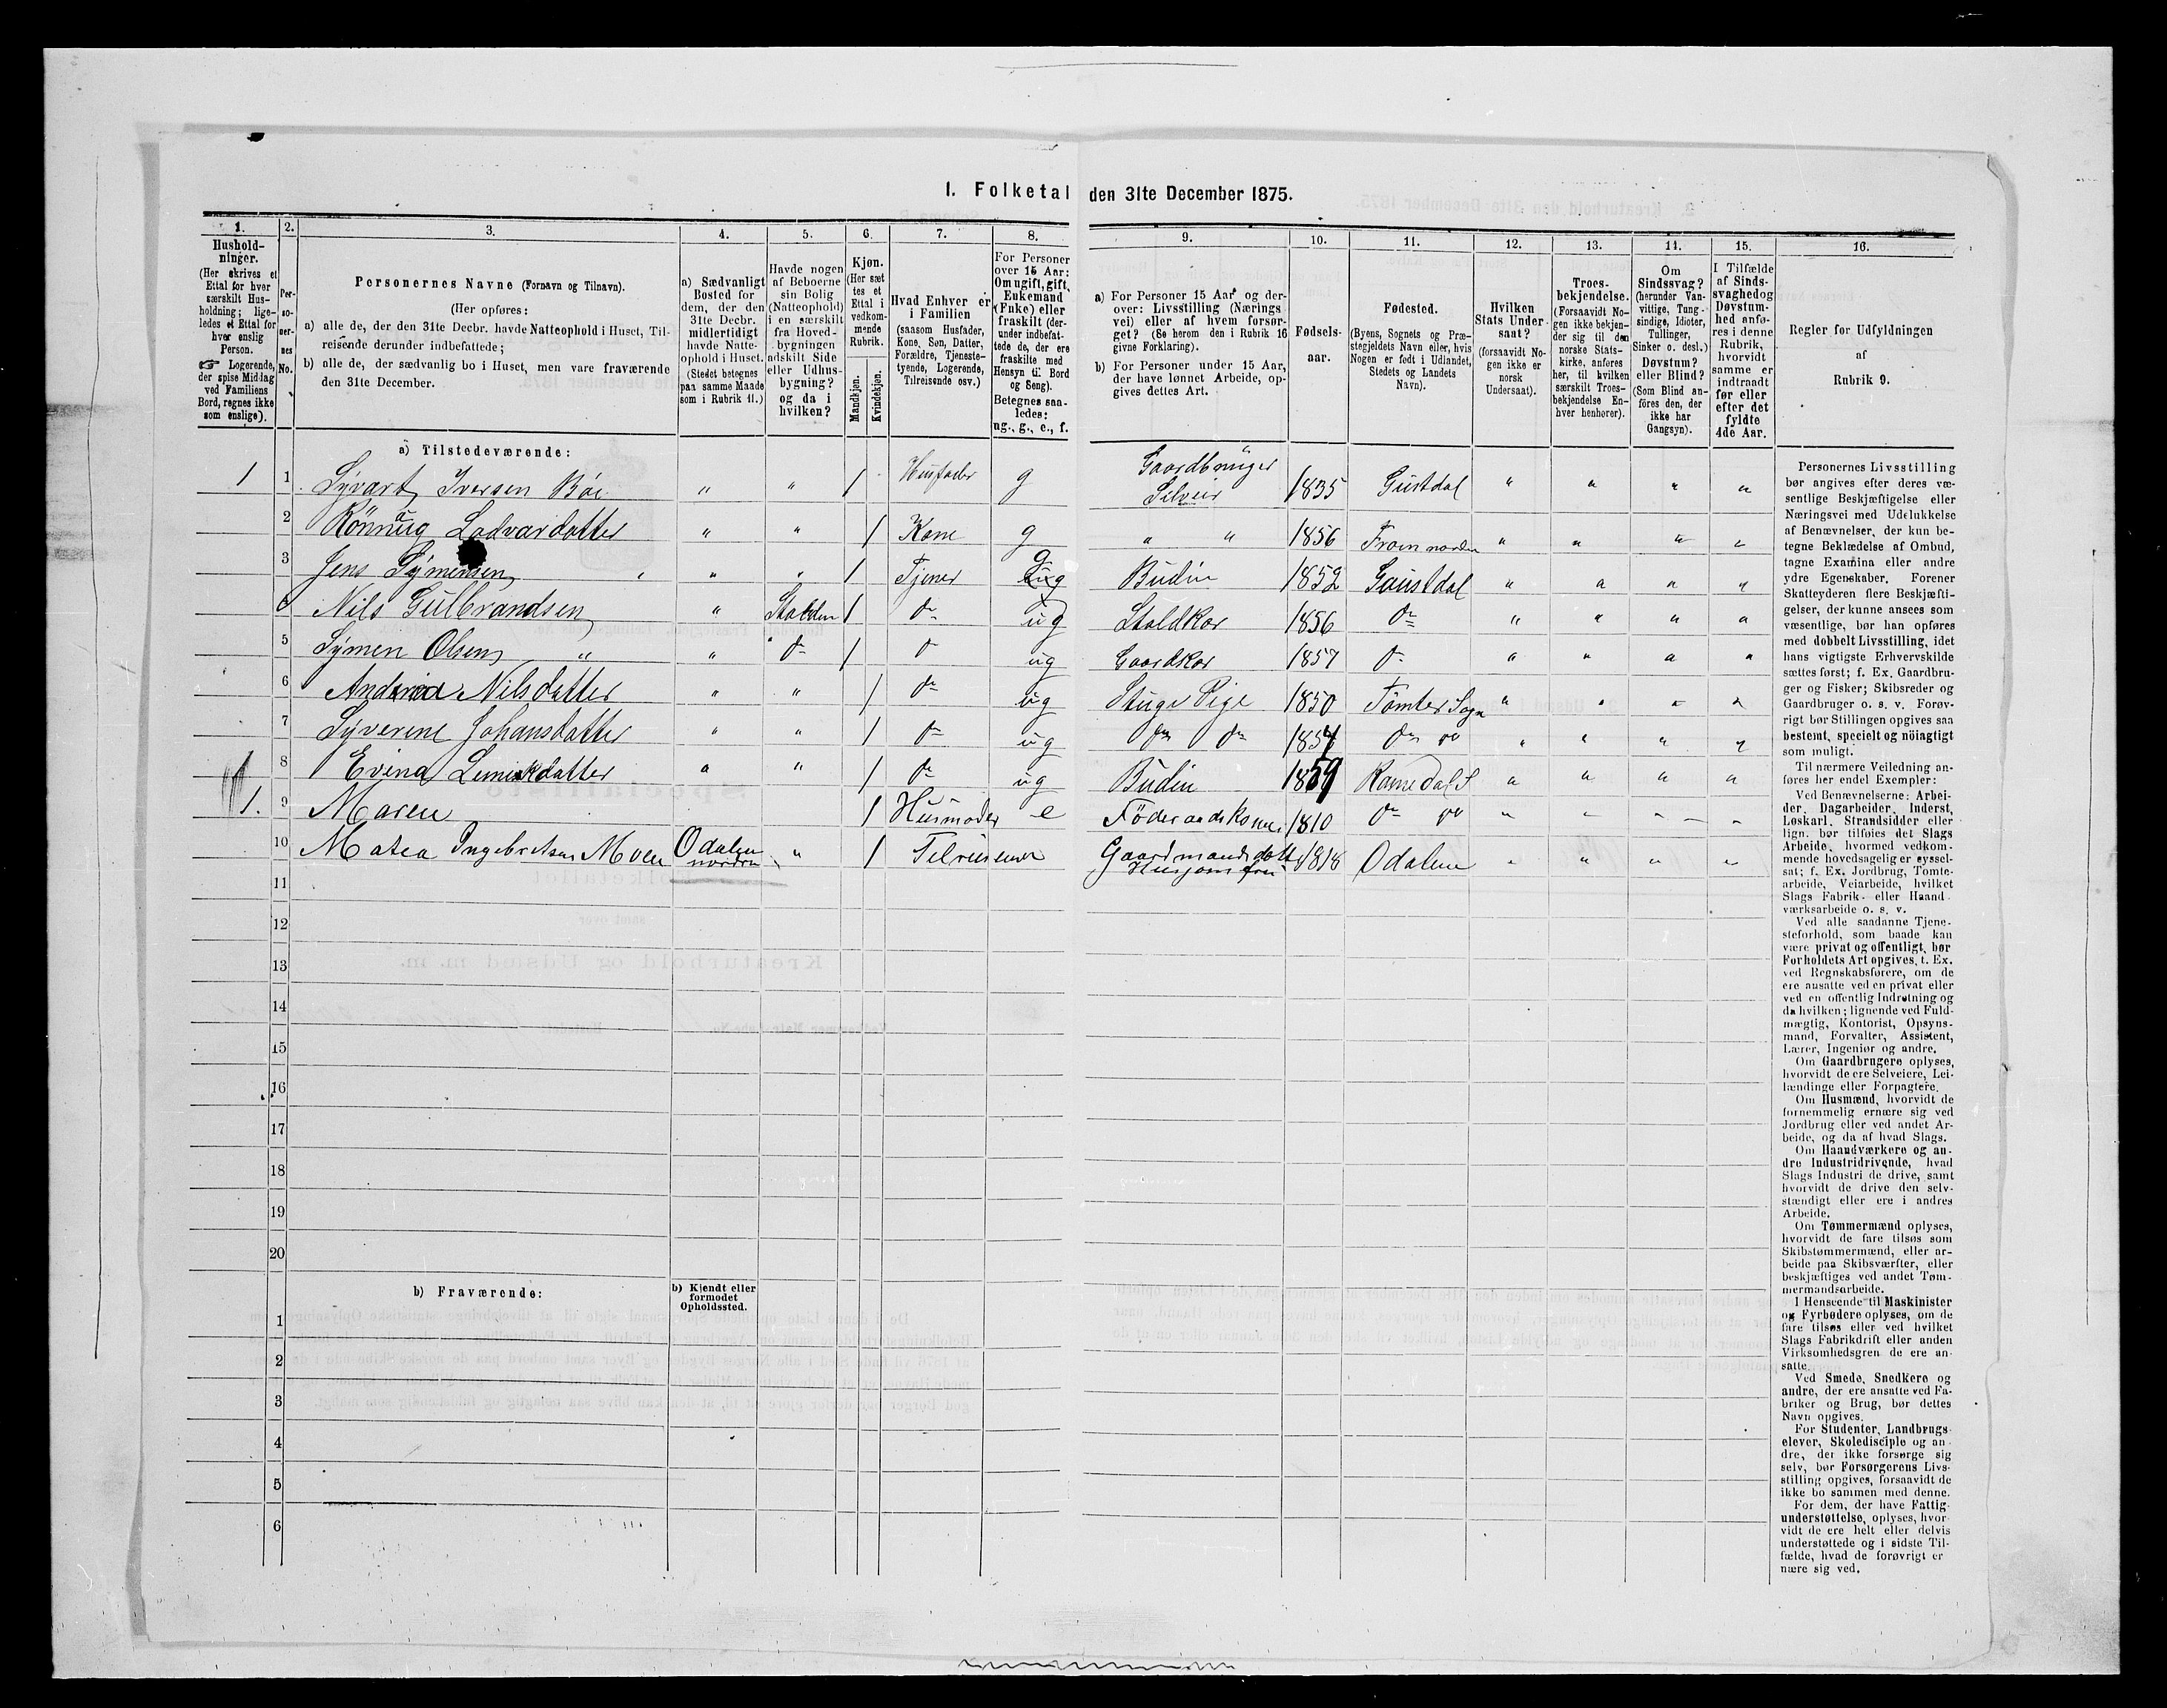 1. Folketal den 31te December 1875.
1.
Hushold-
ninger.
(Her skrives et
Ettal for hver
særskilt Hus-
holdning; lige-
ledes et Ettal for
hver enslig
Person.
☞ Logerende,
der spise Middag
ved Familiens
Bord, regnes ikke
som enslige).
2.
Per-
so-
ner-
nes
No.
3.
Personernes Navne (Fornavn og Tilnavn).
(Her opføres:
a) alle de, der den 31te Decbr. havde Natteophold i Huset, Til-
reisende derunder indbefattede;
b) alle de, der sædvanlig bo i Huset, men vare fraværende
den 31te December.
4.
a) Sædvanligt
Bosted for
dem, der den
31te Decbr.
midlertidigt
havde Natte-
ophold i Huset.
(Stedet betegnes
paa samme Maade
som i Rubrik 11.)
5.
Havde nogen
af Beboerne
sin Bolig
(Natteophold)
i en særskilt
fra Hoved-
bygningen
adskilt Side
eller Udhus-
bygning?
og da i
hvilken?
6.
Kjøn.
(Her sæt
tes et
Ettal i
vedkom-
mende
Rubrik.
Mandkjøn.
Kvindekjøn.
7.
Hvad Enhver er
i Familien
(saasom Husfader,
Kone, Søn, Datter,
Forældre, Tjeneste-
tyende, Logerende,
Tilreisende osv.)
8.
For Personer
over 15 Aar:
Om ugift, gift,
Enkemand
(Enke) eller
fraskilt (der-
under indbefat-
tede de, der ere
fraskilte med
Hensyn til Bord
og Seng).
Betegnes saa-
ledes:
ug., g., e., f.
9.
a) For Personer 15 Aar og der-
over: Livsstilling (Nærings
vei) eller af hvem forsør-
get? (Se herom den i Rubrik 16
givne Forklaring).
b) For Personer under 15 Aar,
der have lønnet Arbeide, op-
gives dettes Art.
10.
Fødsels-
aar.
11.
Fødested.
(Byens, Sognets og Præ-
stegjeldets Navn eller, hvis
Nogen er født i Udlandet,
Stedets og Landets
Navn).
12.
Hvilken
Stats Under-
saat?
(forsaavidt No-
gen ikke er
norsk
Undersaat).
13.
Troes-
bekjendelse.
(Forsaavidt No-
gen ikke bekjen-
der sig til den
norske Stats-
kirke, anføres
her, til hvilken
særskilt Troes-
bekjendelse En-
hver henhører).
14.
Om
Sindssvag?
(herunder Van-
vittige, Tung-
sindige, Idioter,
Tullinger,
Sinker o. desl.)
Døvstum?
eller Blind?
(Som Blind an-
føres den, der
ikke har
Gangsyn).
15.
I Tilfælde
af Sinds-
svaghed og
Døvstum-
hed anfø-
res i denne
Rubrik,
hvorvidt
samme er
indtraadt
før eller
efter det
fyldte
4de Aar.
16.
Regler for Udfyldningen
af
Rubrik 9.
a) Tilstedeværende:
1 1 Syvart Iversen Bøe " " 1 Husfader g Gaardbruger Selveir 1835 Gustdal " " " "
2 Rönnug Lodvardatter " " 1 Kone g " " 1856 Froen nordre " " " "
3 Jens Symensen " " 1 Tjener g Budin 1852 Gaustdal " " " "
Nils Gulbrandsen " Stalden 1 do ug Staldkar 1856 do " " " "
5 Symen Olsen " " do 1 do ug Gaardskar 1857 do " " " "
6 Andrine Nilsdatter " " 1 do ug Stuge Pige 1850 Tömter Sogn " " " "
7 Syverine Johansdatter " " 1 do ug do do 1854 do do " " " "
8 Evina " " 1 do ug Budin 1859 " " " "
1. 9 Maren 1 Husmoder e Föderaadskone 1810 do do " " " "
10 Matea Ingebretsen Moen Odalen nordre " 1 Tilreisener Gaardmandsdatter 1818 Odalen " " " "
11
12
13
14
15
16
17
18
19
20
b) Fraværende:
b) Kjendt eller
formodet
Opholdssted.
1
2
3
4
5
6
Personernes Livsstilling
bør angives efter deres væ-
sentlige Beskjæftigelse eller
Næringsvei med Udelukkelse
af Benævnelser, der kun be-
tegne Beklædelse af Ombud,
tagne Examina eller andre
ydre Egenskaber. Forener
Skatteyderen flere Beskjæfti-
gelser, der kunne ansees som
væsentlige, bør han opføres
med dobbelt Livsstilling, idet
hans vigtigste Erhvervskilde
sættes først; f. Ex. Gaardbru-
ger og Fisker; Skibsreder og
Gaardbruger o. s. v. Forøv-
rigt bør Stillingen opgives saa
bestemt, specielt og nöiagtigt
som muligt.
Til nærmere Veiledning an-
føres her endel Exempler:
Ved Benævnelserne: Arbei-
der, Dagarbeider, Inderst,
Løskarl, Strandsidder eller
lign. bør tilføies det Slags
Arbeide, hvormed vedkom-
mende hovedsagelig er syssel-
sat; f. Ex. Jordbrug, Tomte-
arbeide, Veiarbeide, hvilket
Slags Fabrik- eller Haand-
værksarbeide o. s. v.
Ved alle saadanne Tjene-
steforhold, som baade kan
være privat og offentligt, bør
Forholdets Art opgives, t. Ex.
ved Regnskabsførere, om de
ere ansatte ved en privat eller
ved en offentlig Indretning og
da hvilken; lignende ved Fuld-
mægtig, Kontorist, Opsyns-
mand, Forvalter, Assistent,
Lærer, Ingeniør og andre.
Om Gaardbrugere oplyses,
hvorvidt de ere Selveiere, Lei-
lændinge eller Forpagtere.
Om Husmænd, hvorvidt de
fornemmelig ernære sig ved
Jordbrug eller ved andet Ar-
beide, og da af hvad Slags.
Om Haandværkere og an-
dre Industridrivende, hvad
Slags Industri de drive, samt
hvorvidt de drive den selv-
stændigt eller ere i andres
Arbeide.
Om Tømmermænd oplyses,
hvorvidt de fare tilsøs som
Skibstømmermænd, eller ar-
beide paa Skibsværfter, eller
beskjæftiges ved andet Tøm-
mermandsarbeide.
I Henseende til Maskinister
og Fyrbødere oplyses, om de
fare tilsøs eller ved hvilket
Slags Fabrikdrift eller anden
Virksomhedsgren de ere an-
satte.
Ved Smede, Snedkere og
andre, der ere ansatte ved Fa-
briker og Brug, bør dettes
Navn opgives.
For Studenter, Landbrugs-
elever, Skoledisciple og an-
dre, der ikke forsørge sig
selv, bør Forsørgerens Livs-
stilling opgives, forsaavidt de
ikke bo sammen med denne.
For dem, der have Fattig-
understøttelse, oplyses, hvor-
vidt de ere helt eller delvis
understøttede og i sidste Til-
fælde, hvad de forøvrigt er
nære sig ved.